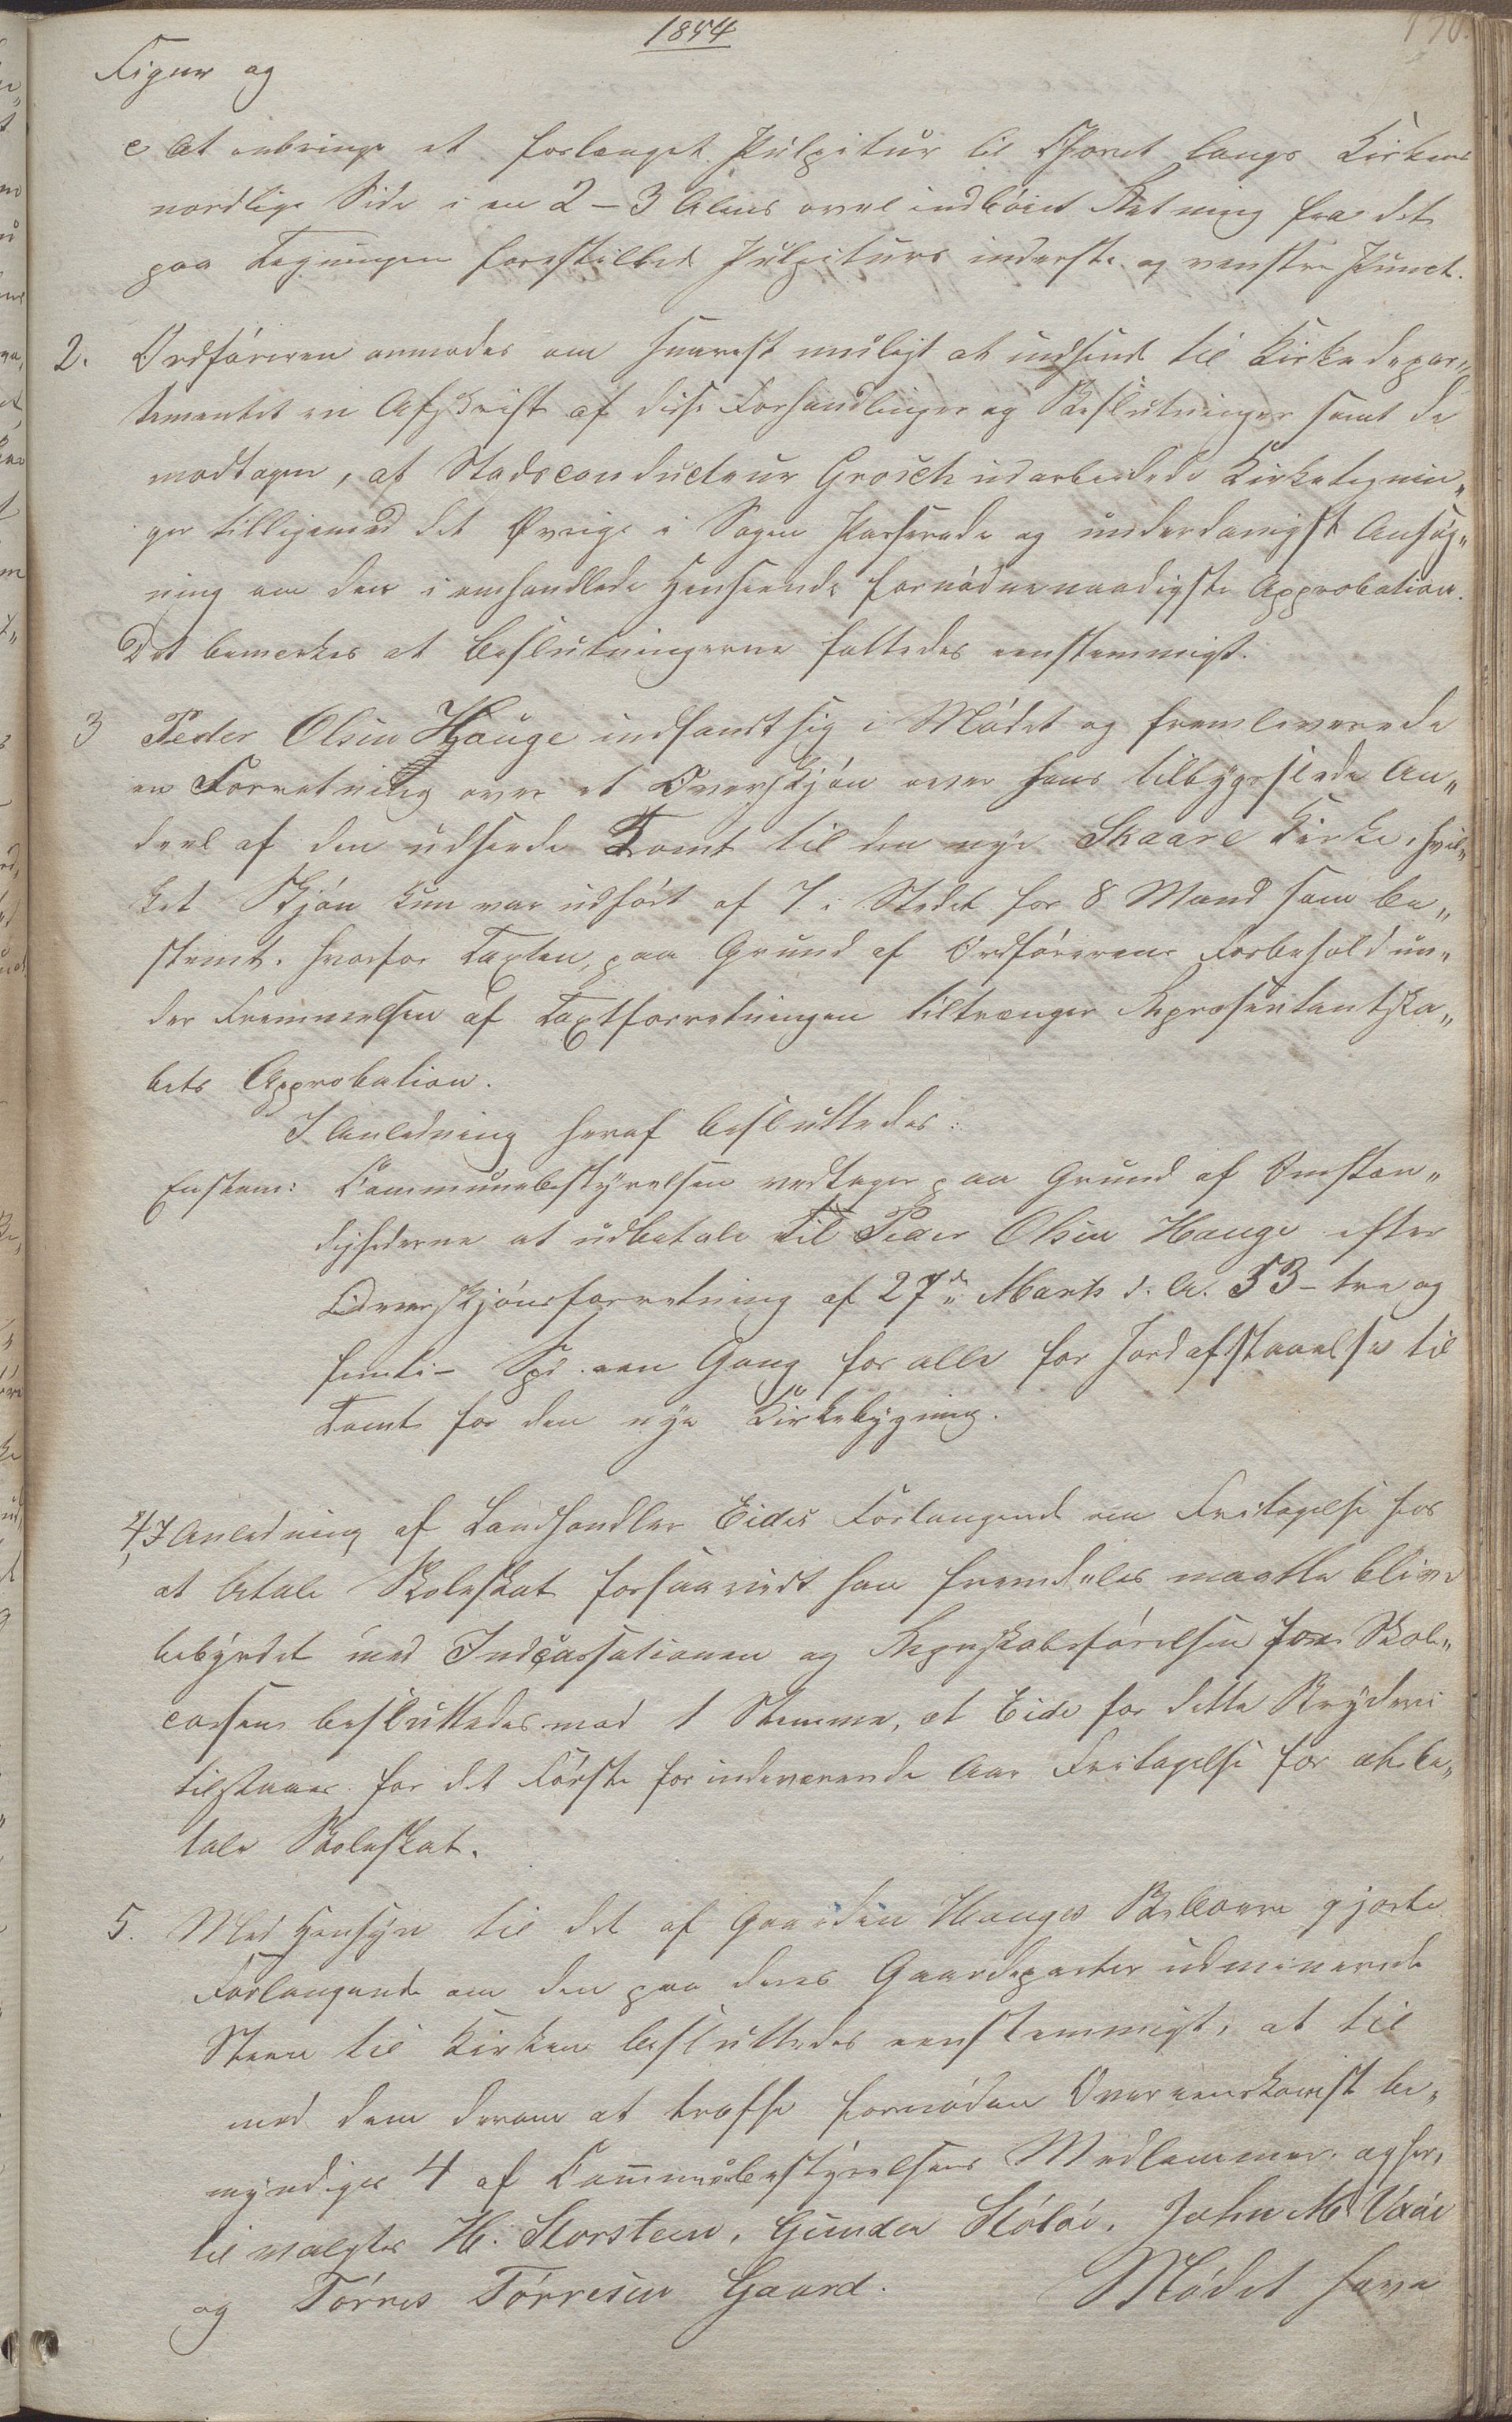 1854
170.
Figur og
c At anbringe et forlænget Pulpitur til Choret langs Kirkens
nordlige Side i en 2-3 Alens oval indböiet Retning fra det
paa Tegningen forestillede Pulpiturs inderste og venstre Punct.
2. Ordföreren anmodes om snarest muligt at indsende til Kirkedepar„
tementet en Afskrift af disse Forhandlinger og Beslutninger samt de
modtagne, af Stadsconducteur Grosch udarbeidede Kirketegnin„
ger tilligemed det Øvrige i Sagen Passerede og underdanigst Ansög„
ning om den i omhandlede Henseende fornödne naadigste Approbation.
Det bemerkes at Beslutningerne fattedes eenstemmigt.
3 Peder Olsen Hauge indfandt sig i Mödet og fremleverede
en Forretning over et Overskjön over hans tilbygslede An„
deel af den udseede Tomt til den nye Skaare Kirke, hvil„
ket Skjön kun var udfört af 7 i Stedet for 8 Mænd som be„
stemt, hvorfor Taxten, paa Grund af Ordförerens Forbehold un„
der Fremmelsen af Taxtforretningen tiltrænger Repræsentantska„
bets Approbation.
I Anledning heraf besluttedes:
Enstem: Communebestyrelsen vedtager paa Grund af Omstæn„
dighederne at udbetale til Peder Olsen Hauge efter
Overskjönsforretning af 27de Marts d. A. 53 - tre og
femti - Spd. een Gang for alle for Jordafstaaelse til
Tomt for den nye Kirkebygning.
4, I Anledning af Landhandler Eides Forlangende om Fritagelse for
at betale Skoleskat forsaavidt han fremdeles maatte blive
bebyrdet med Indcassationen og Regnskabsförelsen for Skole„
cassen besluttedes mod 1 Stemme, at Eide for dette Bryderi
tilstaaes for det Förste for indeværende Aar Fritagelse for at be„
tale Skoleskat.
5. Med Hensyn til det af Gaarden Hauges Beboere gjorte
Forlangende om den paa deres Gaardeparter udminerede
Steen til Kirken besluttedes eenstemmigt, at til
med dem derom at træffe fornöden Overeenskomst be„
myndiges 4 af Com̅unebestyrelsens Medlemmer, og her„
til valgtes H. Storsteen, Gunder Stölöe, John M. Vaae
og Törres Törresen Gaard. Mödet hæve